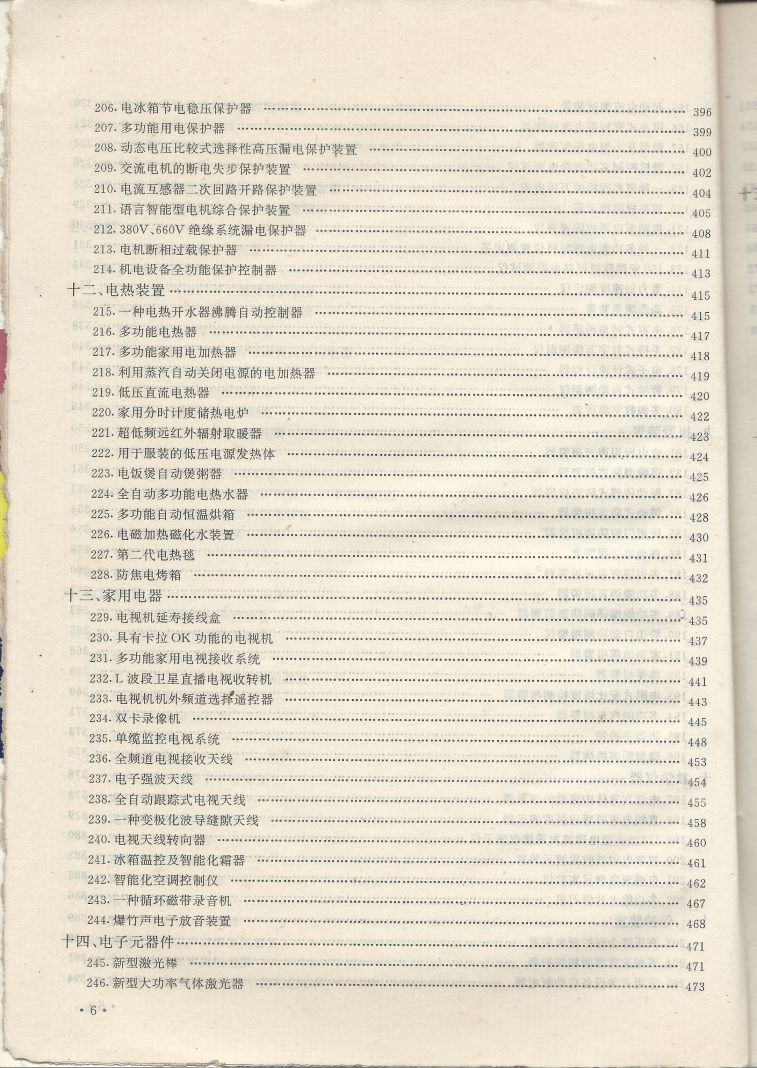 206. 电冰箱节电稳压保护器 …… 396
207. 多功能用电保护器 …… 399
208. 动态电压比较式选择性高压漏电保护装置 …… 400
209. 交流电机的断电失步保护装置 …… 402
210. 电流互感器二次回路开路保护装置 …… 404
211. 语言智能型电机综合保护装置 …… 405
212. 380V、660V 绝缘系统漏电保护器 …… 408
213. 电机断相过载保护器 …… 411
214. 机电设备全功能保护控制器 …… 413
十二、电热装置 …… 415
215. 一种电热开水器沸腾自动控制器 …… 415
216. 多功能电热器 …… 417
217. 多功能家用电加热器 …… 418
218. 利用蒸汽自动关闭电源的电加热器 …… 419
219. 低压直流电热器 …… 420
220. 家用分时计度储热电炉 …… 422
221. 超低频远红外辐射取暖器 …… 423
222. 用于服装的低压电源发热体 …… 424
223. 电饭煲自动煲粥器 …… 425
224. 全自动多功能电热水器 …… 426
225. 多功能自动恒温烘箱 …… 428
226. 电磁加热磁化水装置 …… 430
227. 第二代电热毯 …… 431
228. 防焦电烤箱 …… 432
十三、家用电器 …… 435
229. 电视机延寿接线盒 …… 435
230. 具有卡拉 OK 功能的电视机 …… 437
231. 多功能家用电视接收系统 …… 439
232. L 波段卫星直播电视收转机 …… 441
233. 电视机机外频道选择遥控器 …… 443
234. 双卡录像机 …… 445
235. 单缆监控电视系统 …… 448
236. 全频道电视接收天线 …… 453
237. 电子强波天线 …… 454
238. 全自动跟踪式电视天线 …… 455
239. 一种变极化波导缝隙天线 …… 458
240. 电视天线转向器 …… 460
241. 冰箱温控及智能化霜器 …… 461
242. 智能化空调控制仪 …… 462
243. 一种循环磁带录音机 …… 467
244. 爆竹声电子放音装置 …… 468
十四、电子元器件 …… 471
245. 新型激光棒 …… 471
246. 新型大功率气体激光器 …… 473
· 6 ·